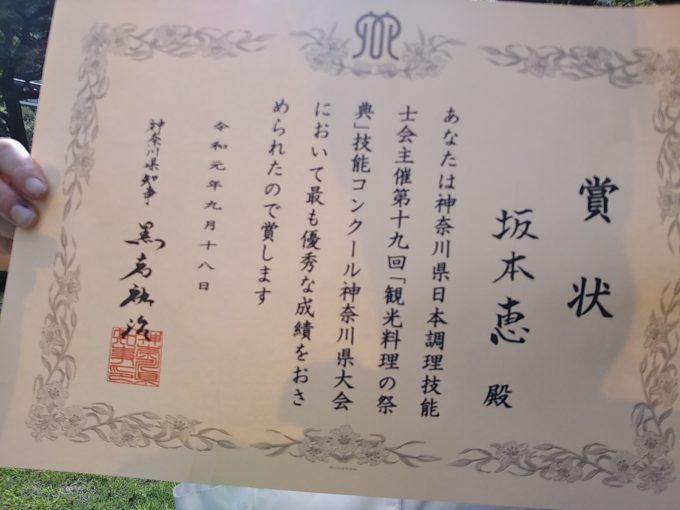 賞状
坂本恵 殿
あなたは神奈川県日本調理技能
士会主催第十九回「観光料理の祭
典」技能コンクール神奈川県大会
において最も優秀な成績をおさ
められたので賞します
令和元年九月十八日
神奈川県知事 黒岩祐治